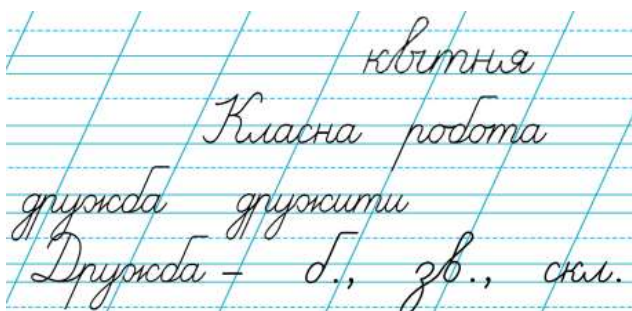 квітня
Класна робота
дружба дружити
Дружба - б., зв., скл.